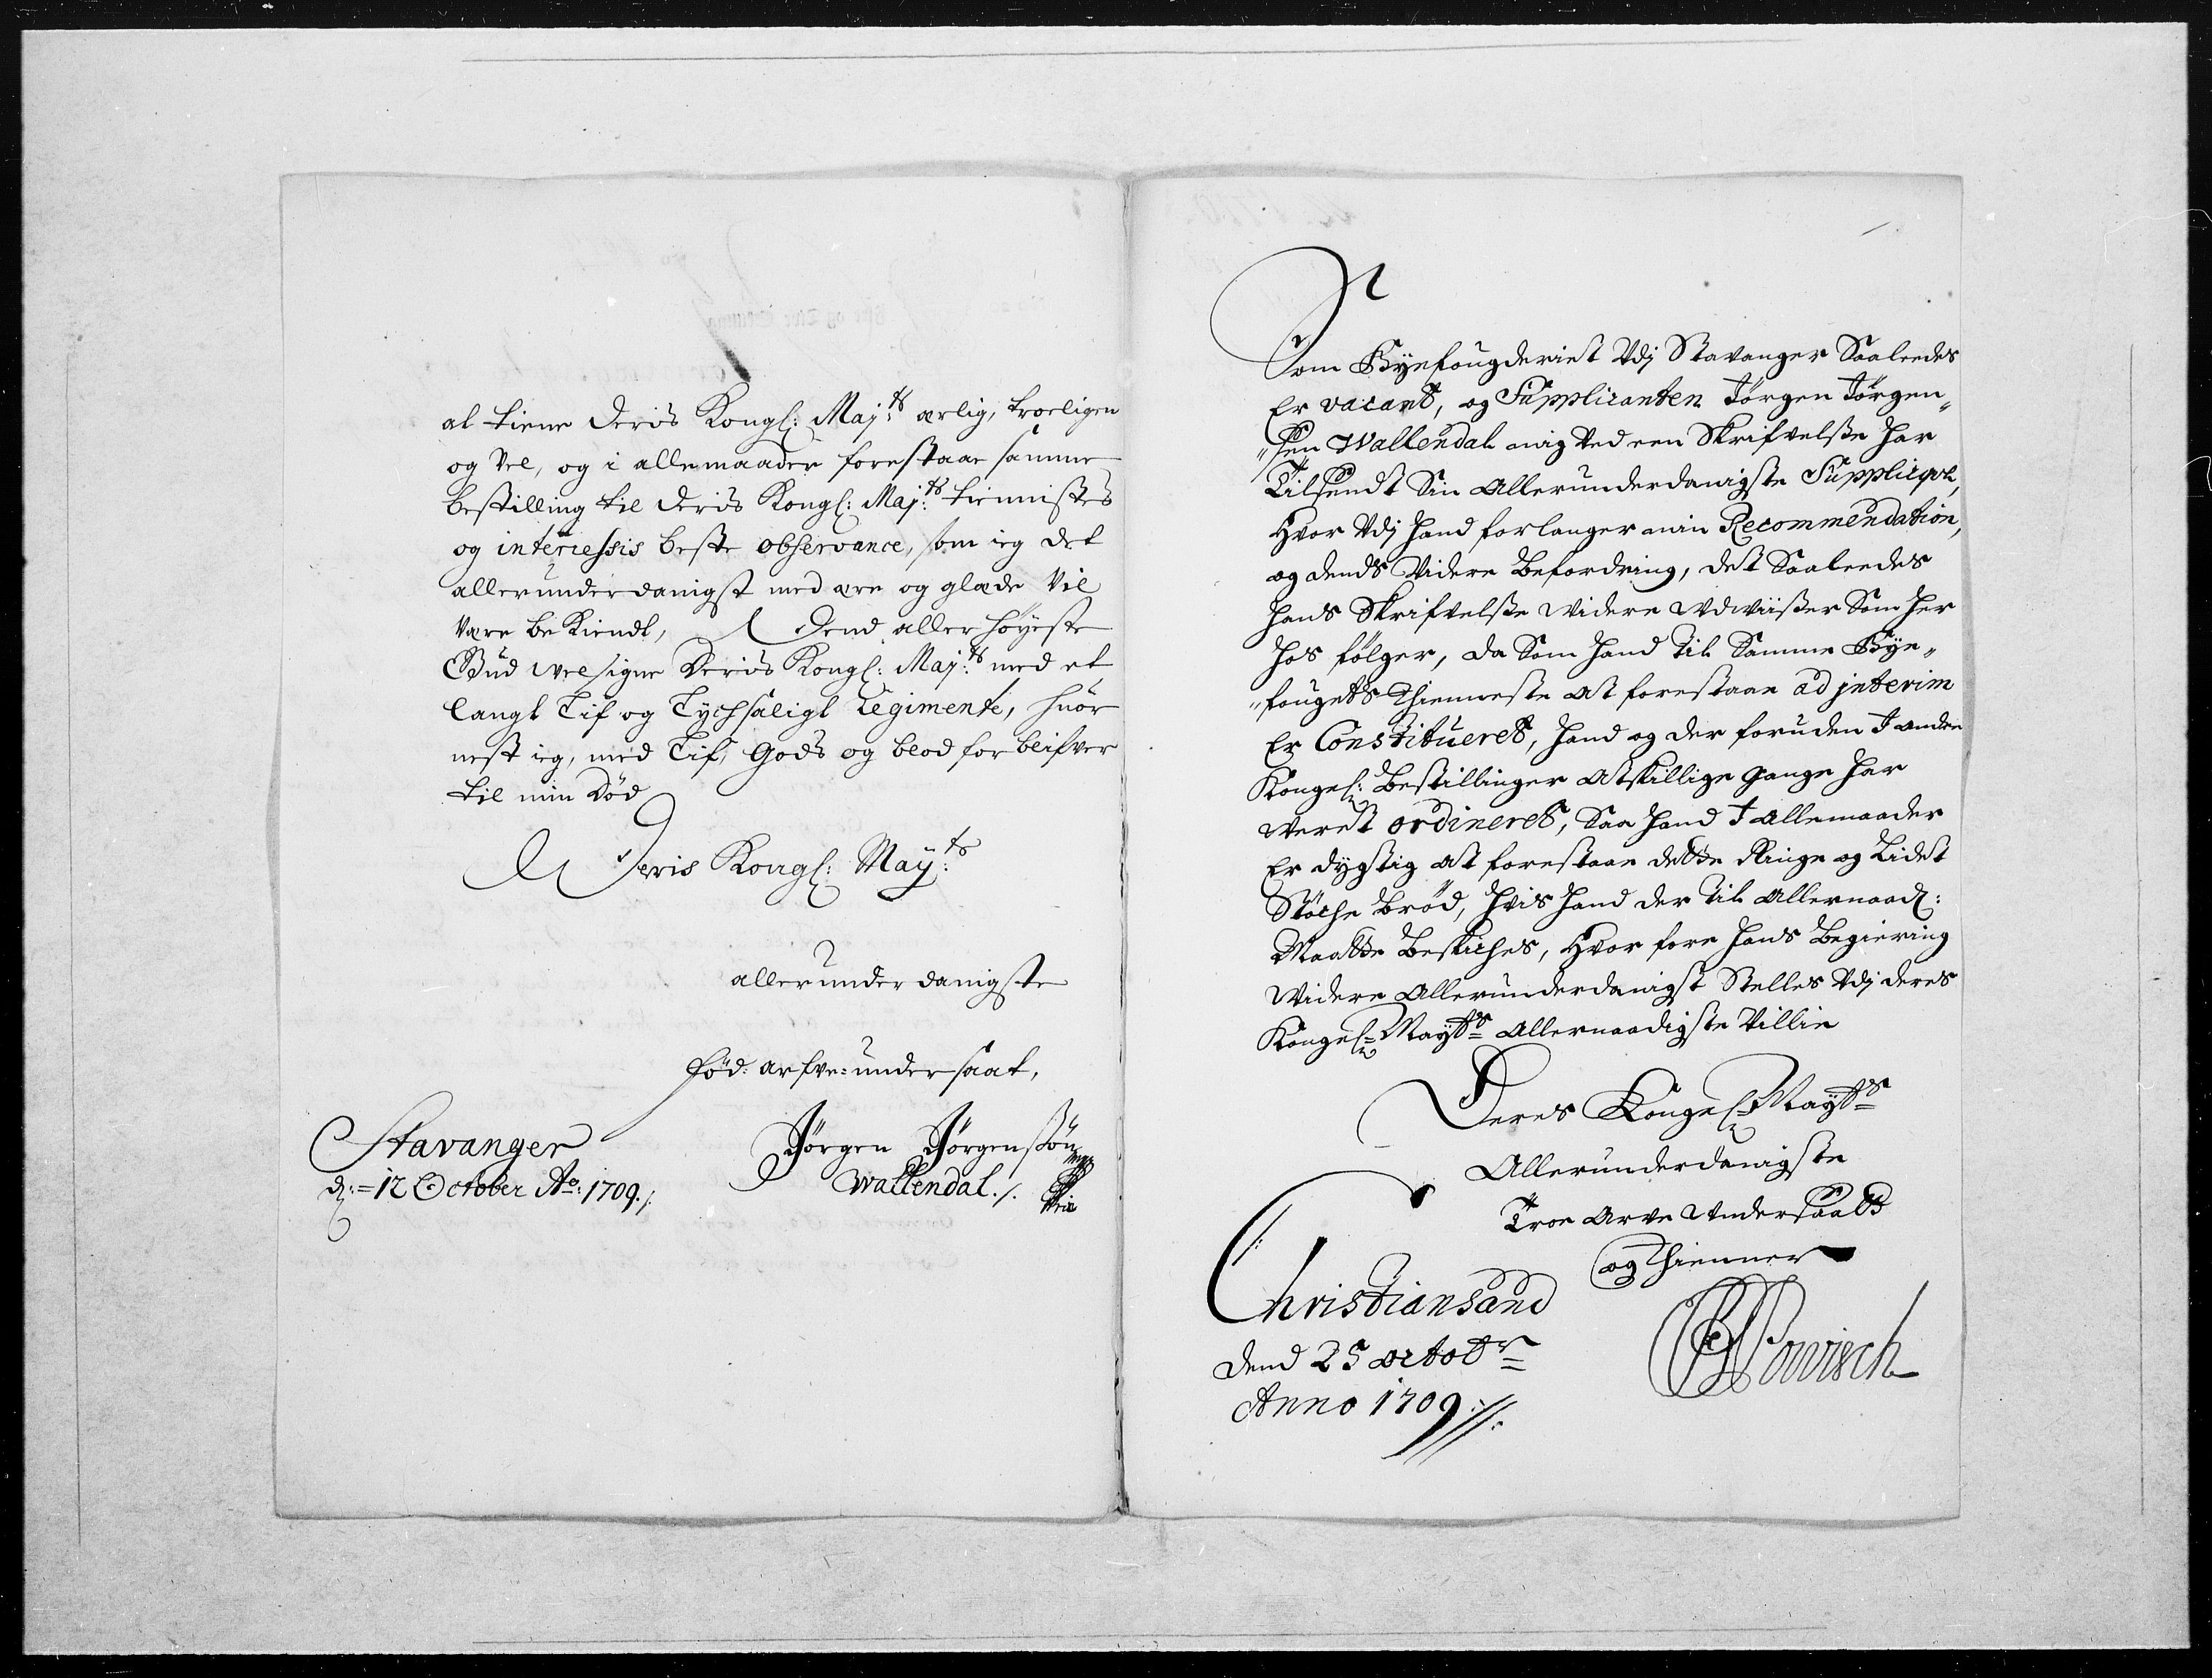 at tiene Deris Kongl: Maj:ts ærlig, troeligen
og vel, og i allemaader forestaae samme
bestilling til Deris Kongl: Maj:ts tiennistes
og interessis beste observance, som ieg det
allerunderdanigst med ære og glæde vil
være bekiendt, Dend allerhöyeste
Gud velsigne Deris Kongl: Maj:ts med et
langt Lif og Lychsaligt Regimente, huor
nest ieg, med Lif, Gods og blod forblifver
til min Död
Deris Kongl: May:ts
allerunderdanigste
föd: arfve-undersaat,
Jörgen Jörgenssön
Wallendal ./.
Stavanger
d: 12 October Ao: 1709 ./.
Som Byefougderiet Vdj Stavanger Saaleedes
Er vacant, og Supplicanten Jörgen Jörgen„
„sen Wallendal mig Ved een Skrifvelsse har
Tilsendt Sin Allerunderdanigste Suppliqve,
Hvor Vdj hand forlanger min Recommendation,
og dends Videre Befordring, det Saaleedes
hans Skrifvelsse widere Vdwiisser Som her
hos fölger, da Som hand Til Samme Bye„
„fougets Thienneste at forestaae ad jnterim
Er Constitueret, hand og der foruden J andre
Kongel: Bestillinger Atskillige gange har
weret ordineret, Saa hand J Allemaader
Er dygtig at forestaae dette Ringe og Lidet
Stöche bröd, hvis hand der Til Allernaad:
Maatte Beskiches, Hvor fore hans Begiering
Widere Allerunderdanigst Stelles Vdj deres
Kongel: Maytts Allernaadigste Villie
Deres Kongel: Maytts
Allerunderdanigste
Troe Arve Undersaatt
og Thienner
Christiansand
dend 25 octobr
Anno 1709 ://:
Powisch